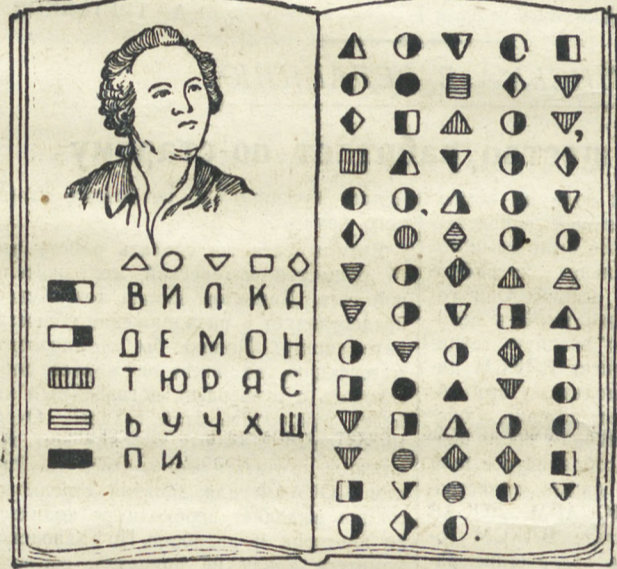 ВИЛКА
ДЕМОН
ТЮРЯС
ЬУЧХЩ
ПИ